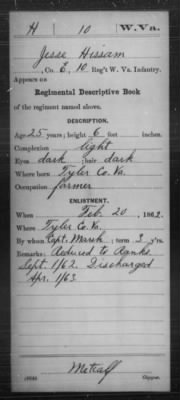 H 10 W.Va.
Jesse Hissam
, Co. E, 10 Reg't W. Va. Infantry.
Appears on
Regimental Descriptive Book
of the regiment named above.
DESCRIPTION.
Age 25 years; height 6 feet inches.
Complexion light
Eyes dark; hair dark
Where born Tyler Co. Va.
Occupation farmer
ENLISTMENT.
When Feb. 20, 1862.
Where Tyler Co. Va.
By whom Capt. Marsh; term 3 y'rs.
Remarks: Reduced to Ranks
Sept. 1/62. Discharged
Apr. 1/63.
Metcalf
Copyist.